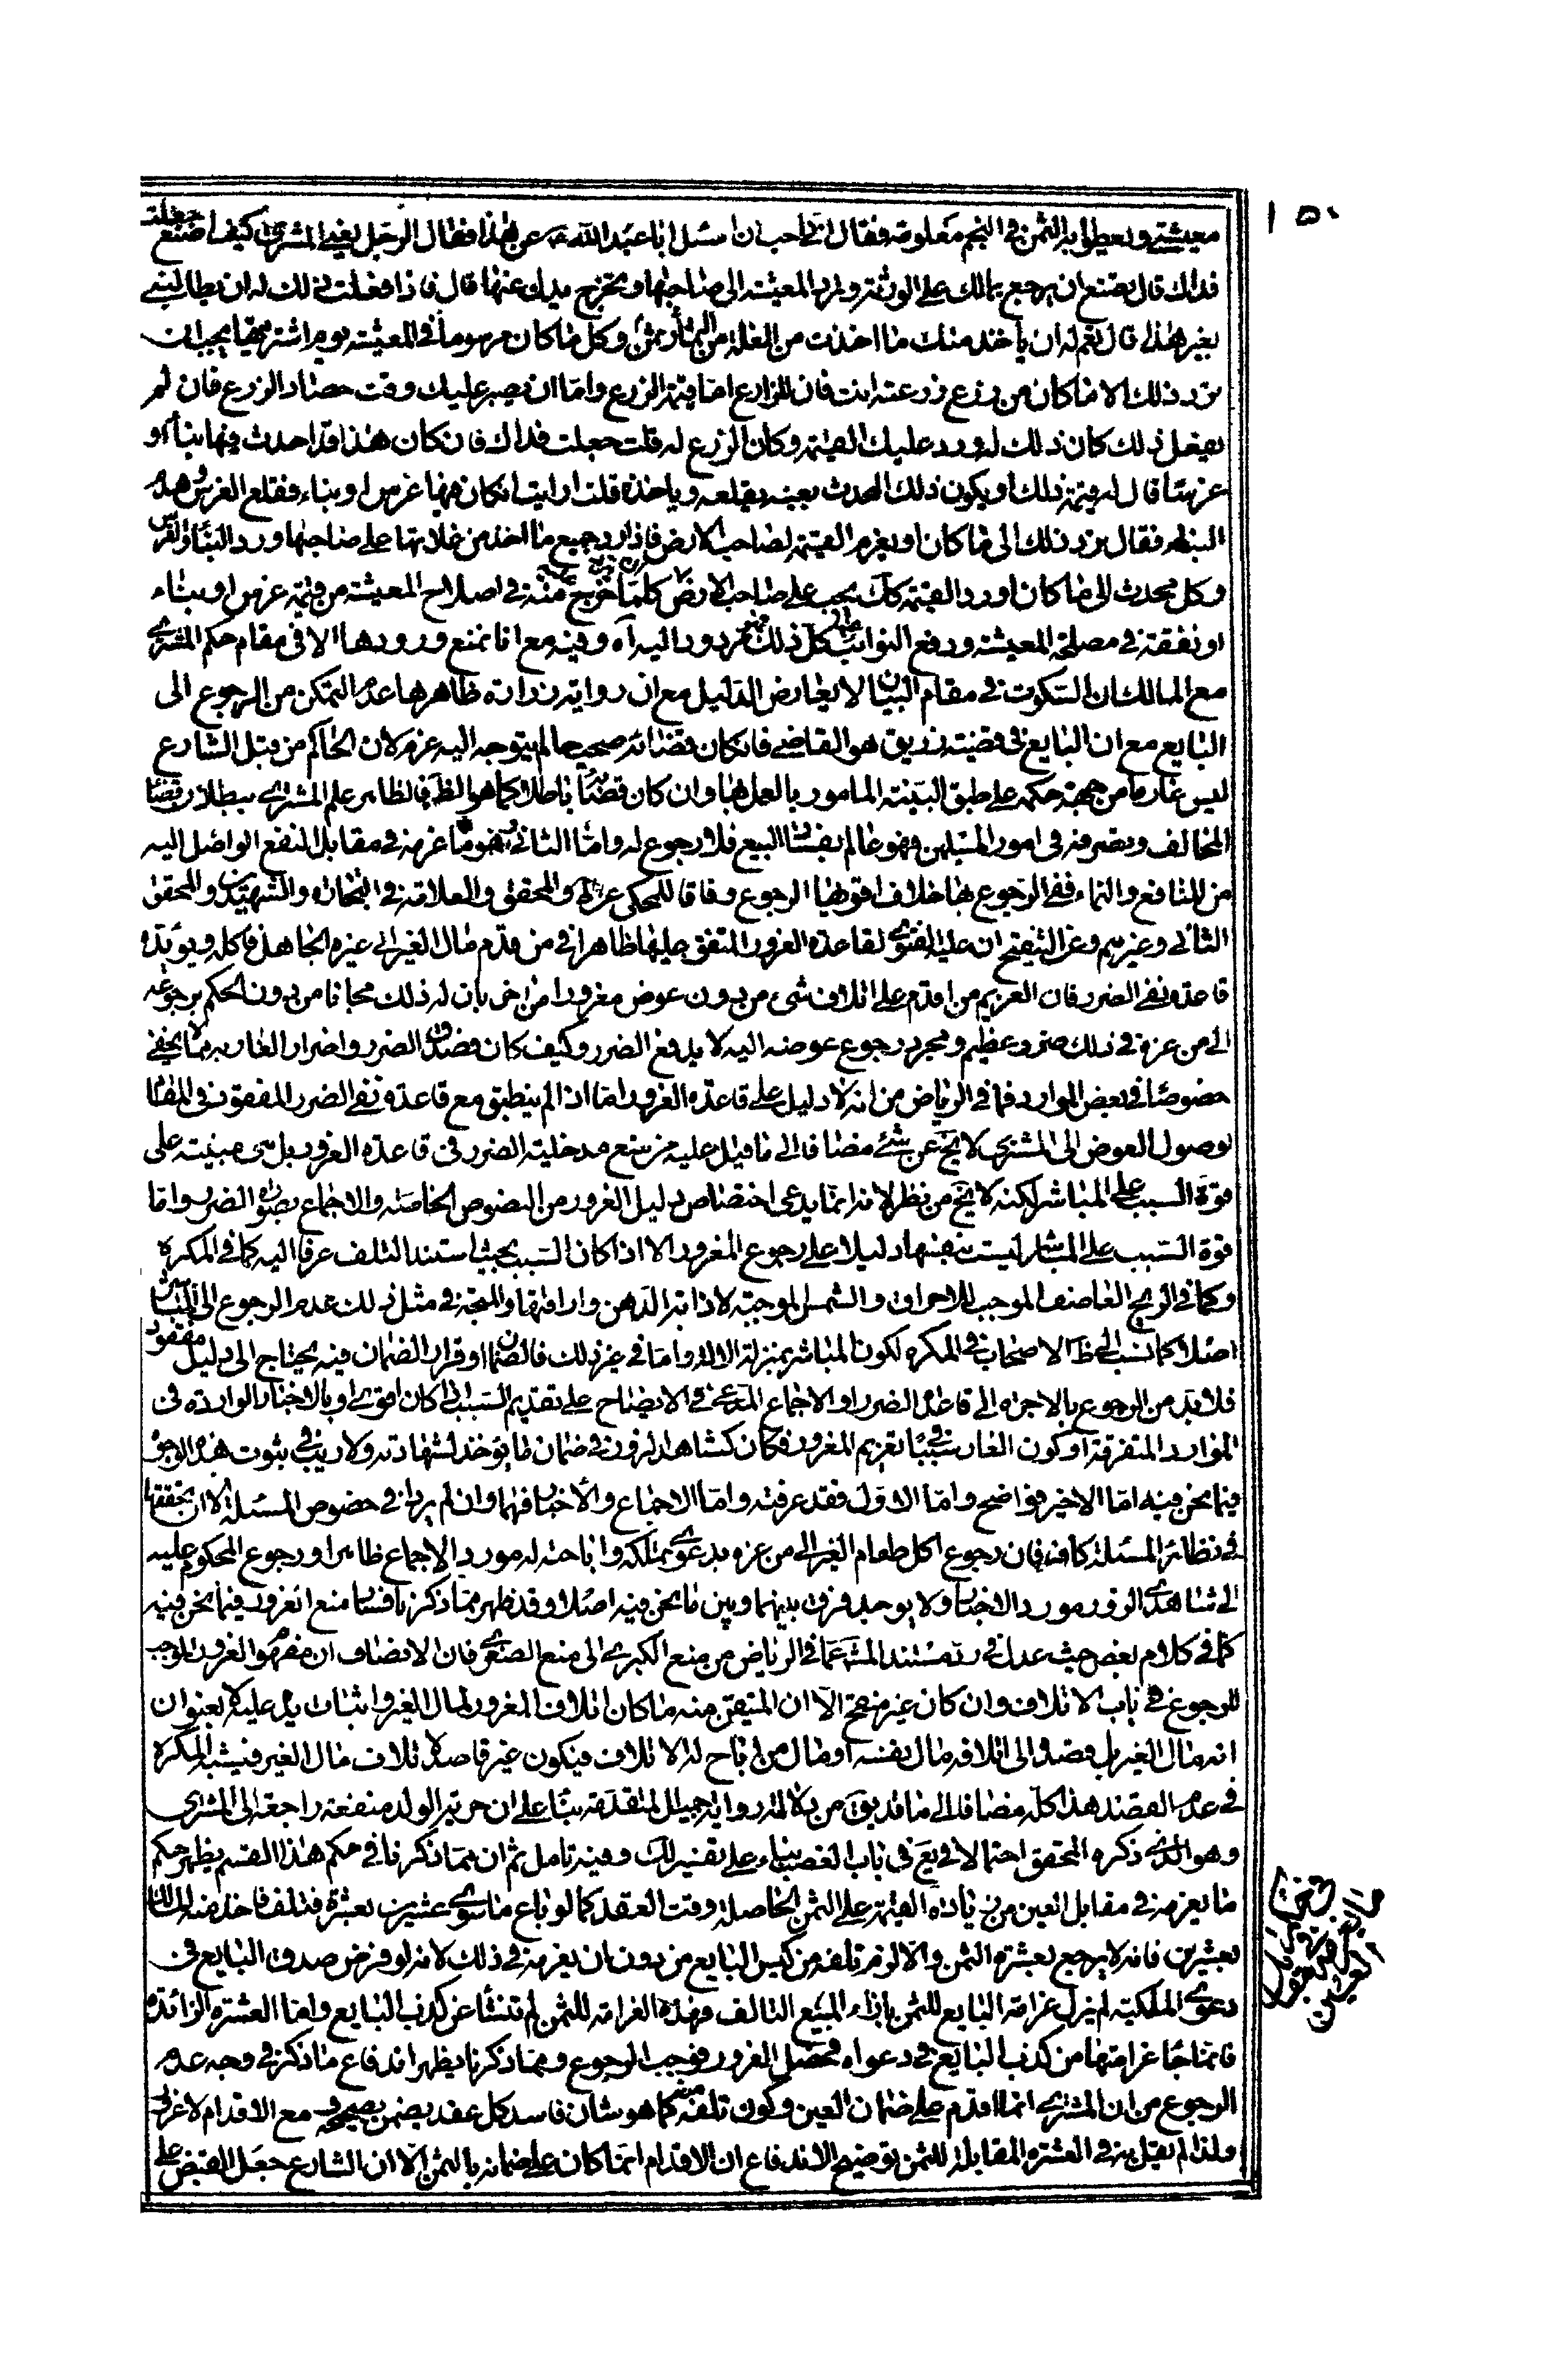 ١٥٠
معيشتي ويعطوا به الثمن في النجم معلومة فقال اني احب ان اسئل ابا عبد الله ع عن هذا فقال الرجل يعني المشتري كيف اصنع جعلت
فداك قال يصنع ان يرجع بمالك على الورثة ويرد المعيشة الى صاحبها ويخرج يده عنها قال فاذا فعلت ذلك له ان يطالبني
بغير هذا قال نعم له ان ياخذ منك ما اخذت من الغلة من ثمن الثمار وكل ما كان مرسوما في المعيشة يوم اشتريتها يجب ان
ترد ذلك الا ما كان من زرع زرعته انت فان للزارع اما قيمة الزرع واما ان يصبر عليك وقت حصاد الزرع فان لم
يفعل ذلك كان ذلك له ورد عليك القيمة وكان الزرع له قلت جعلت فداك فان كان هذا قد احدث فيها بناء او
غرسا قال له قيمة ذلك او يكون ذلك المحدث بعينه يقلعه وياخذه قلت ارايت ان كان فيها غرس او بناء فقلع الغرس وهدم
البناء فقال يرد ذلك الى ما كان او يغرم القيمة لصاحب الارض فاذا رد جميع ما اخذ من غلاتها على صاحبها ورد البناء والغرس
وكل محدث الى ما كان او رد القيمة كك يجب على صاحب الارض ان يرد عليه كلما خرج منه في اصلاح المعيشة من قيمة غرس او بناء
او نفقة في مصلحة المعيشة ودفع النوائب عنها كل ذلك فهو مردود اليه آه وفيه مع انا نمنع ورودها الا في مقام حكم المشتري
مع المالك ان السكوت في مقام البيان لا يعارض الدليل مع ان رواية زرارة ظاهرها عدم التمكن من الرجوع الى
البايع مع ان البايع في قضية زريق هو القاضي فان كان قضائه صحيحا لم يتوجه اليه غرم لان الحاكم من قبل الشارع
ليس غارما من جهة حكمه على طبق البينة المامور بالعمل بها وان كان قضائه باطلا كما هو الظ فالظاهر علم المشتري ببطلان قضاء
المخالف وتصرفه في امور المسلمين فهو عالم بفساد البيع فلا رجوع له واما الثاني وهو ما غرمه في مقابل النفع الواصل اليه
من المنافع والنماء ففي الرجوع بها خلاف اقويها الرجوع وفاقا للمحكي عن ط والمحقق والعلامة في التجارة والشهيدين والمحقق
الثاني وغيرهم وعن التنقيح ان عليه الفتوى لقاعدة الغرور المتفق عليها ظاهرا في من قدم مال الغير الى غيره الجاهل فاكله ويؤيده
قاعدة نفي الضرر فان تغريم من اقدم على اتلاف شيء من دون عوض مغرورا من اخر بان له ذلك مجانا من دون الحكم برجوعه
الى من غره في ذلك ضرر عظيم ومجرد رجوع عوضه اليه لا يدفع الضرر وكيف كان فصدق الضرر واضرار الغار به مما لا يخفى
خصوصا في بعض الموارد فما في الرياض من انه لا دليل على قاعدة الغرور اما اذا لم ينطبق مع قاعدة نفي الضرر المفقود في المقام
لوصول العوض الى المشتري لا يخ عن شيء مضافا الى ما قيل عليه من منع مدخلية الضرر في قاعدة الغرور بل هي مبنية على
قوة السبب على المباشر لكنه لا يخ من نظر لانه انما يدعى اختصاص دليل الغرور من النصوص الخاصة والاجماع بصورة الضرر واما
قوة السبب على المباشر ليست بنفسها دليلا على رجوع المغرور الا اذا كان السبب بحيث استند التلف عرفا اليه كما في المكره
وكما في الريح العاصف الموجب للاحراق والشمس الموجبة لاذابة الدهن واراقتها والمتجه في مثل ذلك عدم الرجوع الى المباشر
اصلا كما نسب الى ظ الاصحاب في المكره لكون المباشر بمنزلة الالة واما في غير ذلك فالضمان او قرار الضمان فيه يحتاج الى دليل مفقود
فلا بد من الرجوع بالاخرة الى قاعدة الضرر او الاجماع المدعى في الايضاح على تقديم السبب اذا كان اقوى او بالاخبار الواردة في
الموارد المتفرقة او كون الغار سببا في تغريم المغرور فكان كشاهد الزور في ضمان ما يؤخذ لشهادته ولا ريب في ثبوت هذه الوجوه
فيما نحن فيه اما الاخير فواضح واما الاول فقد عرفته واما الاجماع والاخبار فهما وان لم يردا في خصوص المسئلة الا ان تحققهما
في نظائر المسئلة كاف فان رجوع اكل طعام الغير الى من غره بدعوى تملكه واباحته له مورد الاجماع ظاهرا ورجوع المحكوم عليه
الى شاهدي الزور مورد الاخبار ولا يوجد فرق بينهما وبين ما نحن فيه اصلا وقد ظهر مما ذكرنا فساد منع الغرور فيما نحن فيه
كما في كلام بعض حيث عدل في رد مستند المشهور عما في الرياض من منع الكبرى الى منع الصغرى فان الانصاف ان مفهوم الغرور الموجب
للرجوع في باب الاتلاف وان كان غير منقح الا ان المتيقن منه ما كان اتلاف المغرور لمال الغير واثبات يده عليه لا بعنوان
انه مال الغير بل قصده الى اتلافه مال نفسه او مال من اباح له الاتلاف فيكون غير قاصد لاتلاف مال الغير فيشبه المكره
في عدم القصد هذا كله مضافا الى ما قد يق من دلالة رواية جميل المتقدمة بناء على ان حرية الولد منفعة راجعة الى المشتري
وهو الذي ذكره المحقق احتمالا في يع في باب الغصب بناء على تفسير لك وفيه تامل ثم ان مما ذكرنا في حكم هذا القسم يظهر حكم
ما يغرمه في مقابل العين من زيادة القيمة على الثمن الحاصلة وقت العقد كما لو باع ما يسوى عشرين بعشرة فتلف فاخذ منه المالك
بعشرين فانه لا يرجع بعشرة الثمن والا لزم تلفه من كيس البايع من دون ان يغره في ذلك لانه لو فرض صدق البايع في
دعوى الملكية لم يزل غرامة البايع للثمن بازاء المبيع التالف فهذه الغرامة للثمن لم تنشأ عن كذب البايع واما العشرة الزائدة
فانما جاء غرامتها من كذب البايع في دعواه فحصل الغرور فوجب الرجوع ومما ذكرنا يظهر اندفاع ما ذكر في وجه عدم
الرجوع من ان المشتري انما اقدم على ضمان العين وكون تلفه منه كما هو شان فاسد كل عقد يضمن بصحيحه ومع الاقدام لا غرور
ولذا لم يقل به في العشرة المقابلة للثمن توضيح الاندفاع ان الاقدام انما كان على ضمانه بالثمن الا ان الشارع جعل القبض على